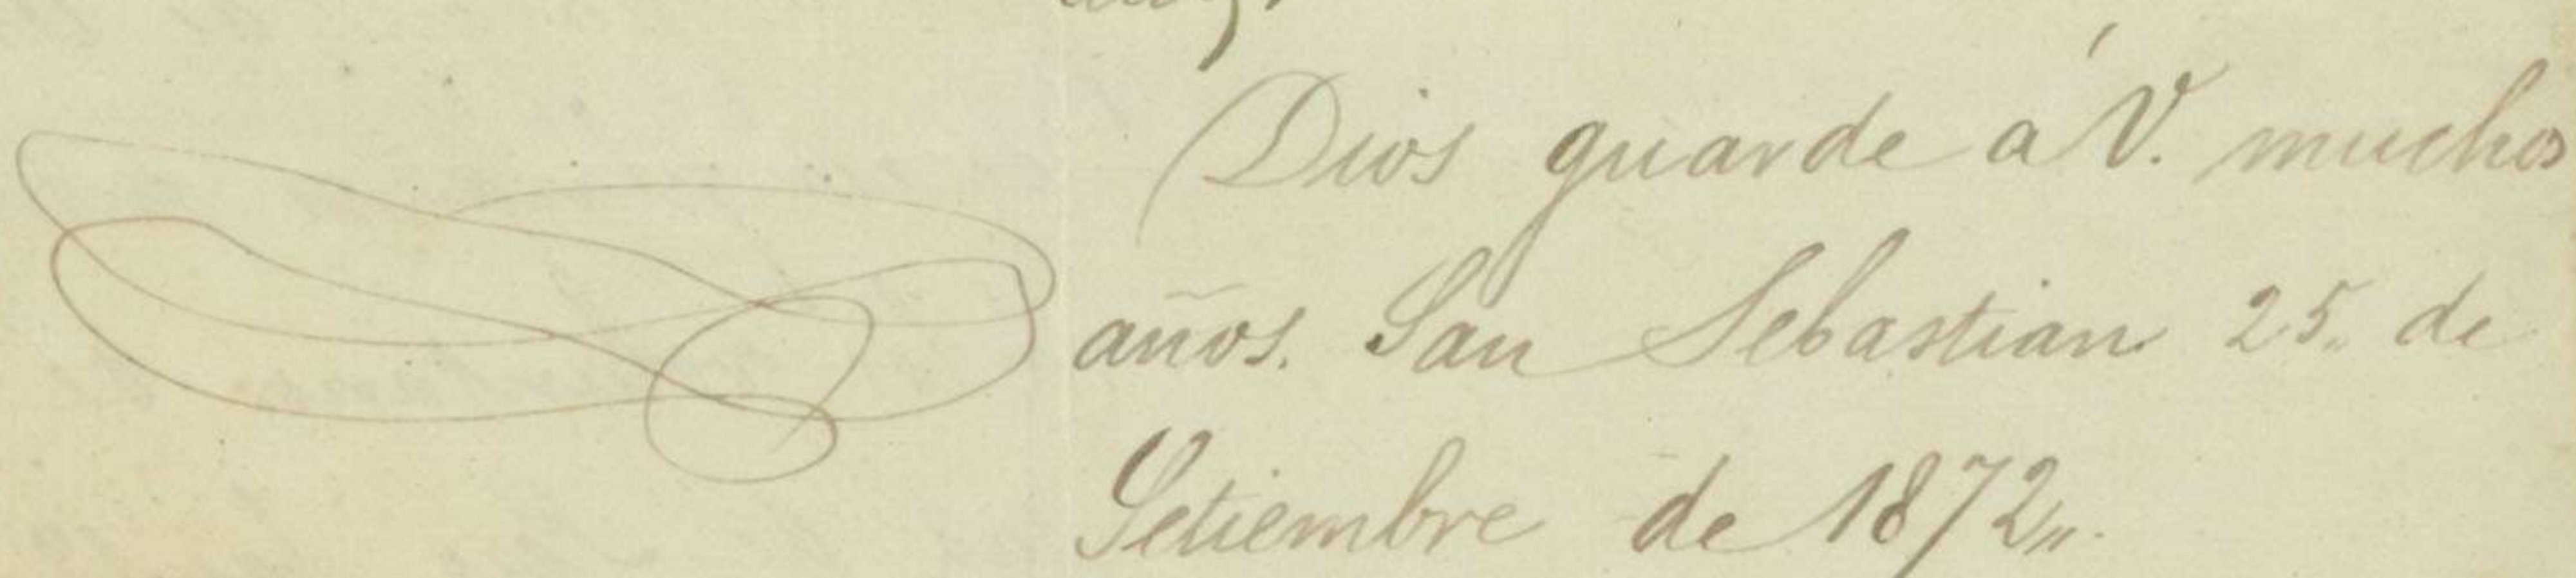 Dios guarde á V. muchos
años. San Sebastian 25,, de
Setiembre de 1872,,.